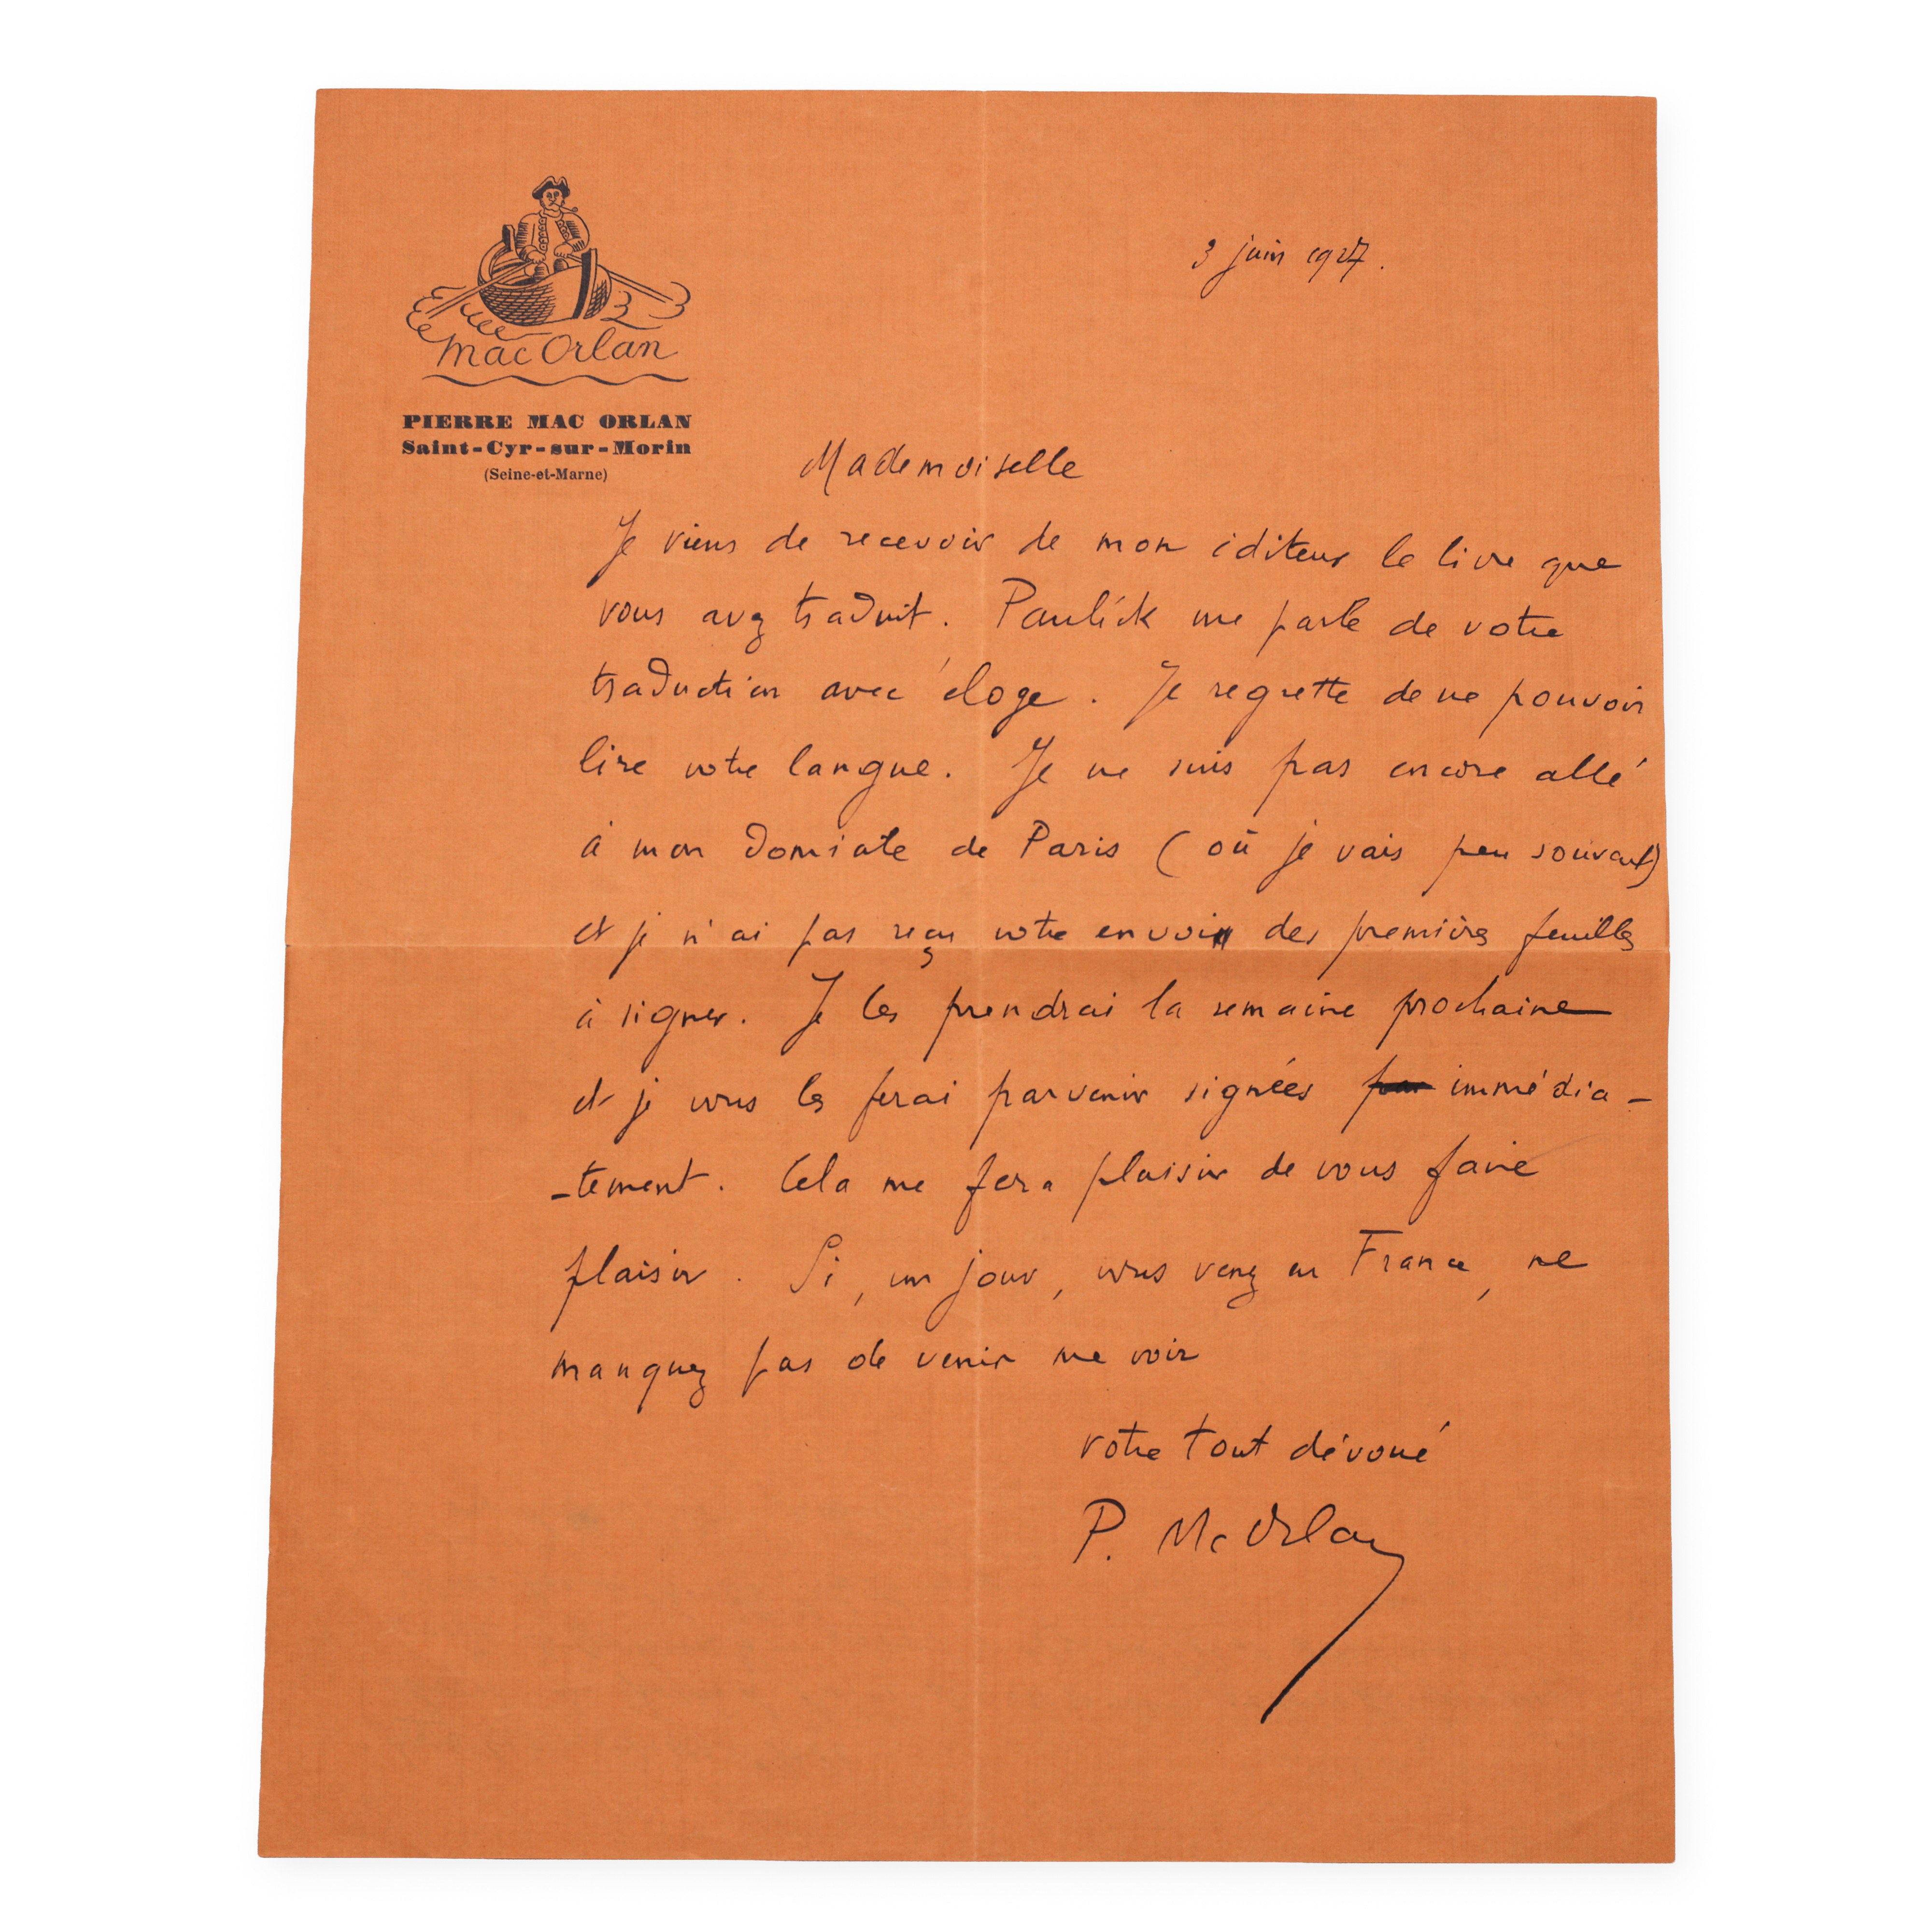 mac Orlan
PIERRE MAC ORLAN
Saint-Cyr-sur-Morin
(Seine-et-Marne)
3 juin 1927.
Mademoiselle
Je viens de recevoir de mon éditeur le livre que
vous avez traduit. Paulick me parle de votre
traduction avec éloge. Je regrette de ne pouvoir
lire votre langue. Je ne suis pas encore allé
à mon domicile de Paris (où je vais peu souvent)
et je n'ai pas reçu votre envoi des premières feuilles
à signer. Je les prendrai la semaine prochaine
et je vous les ferai parvenir signées immédia-
-tement. Cela me fera plaisir de vous faire
plaisir. Si, un jour, vous venez en France, ne
manquez pas de venir me voir
votre tout dévoué
P. Mc Orlan